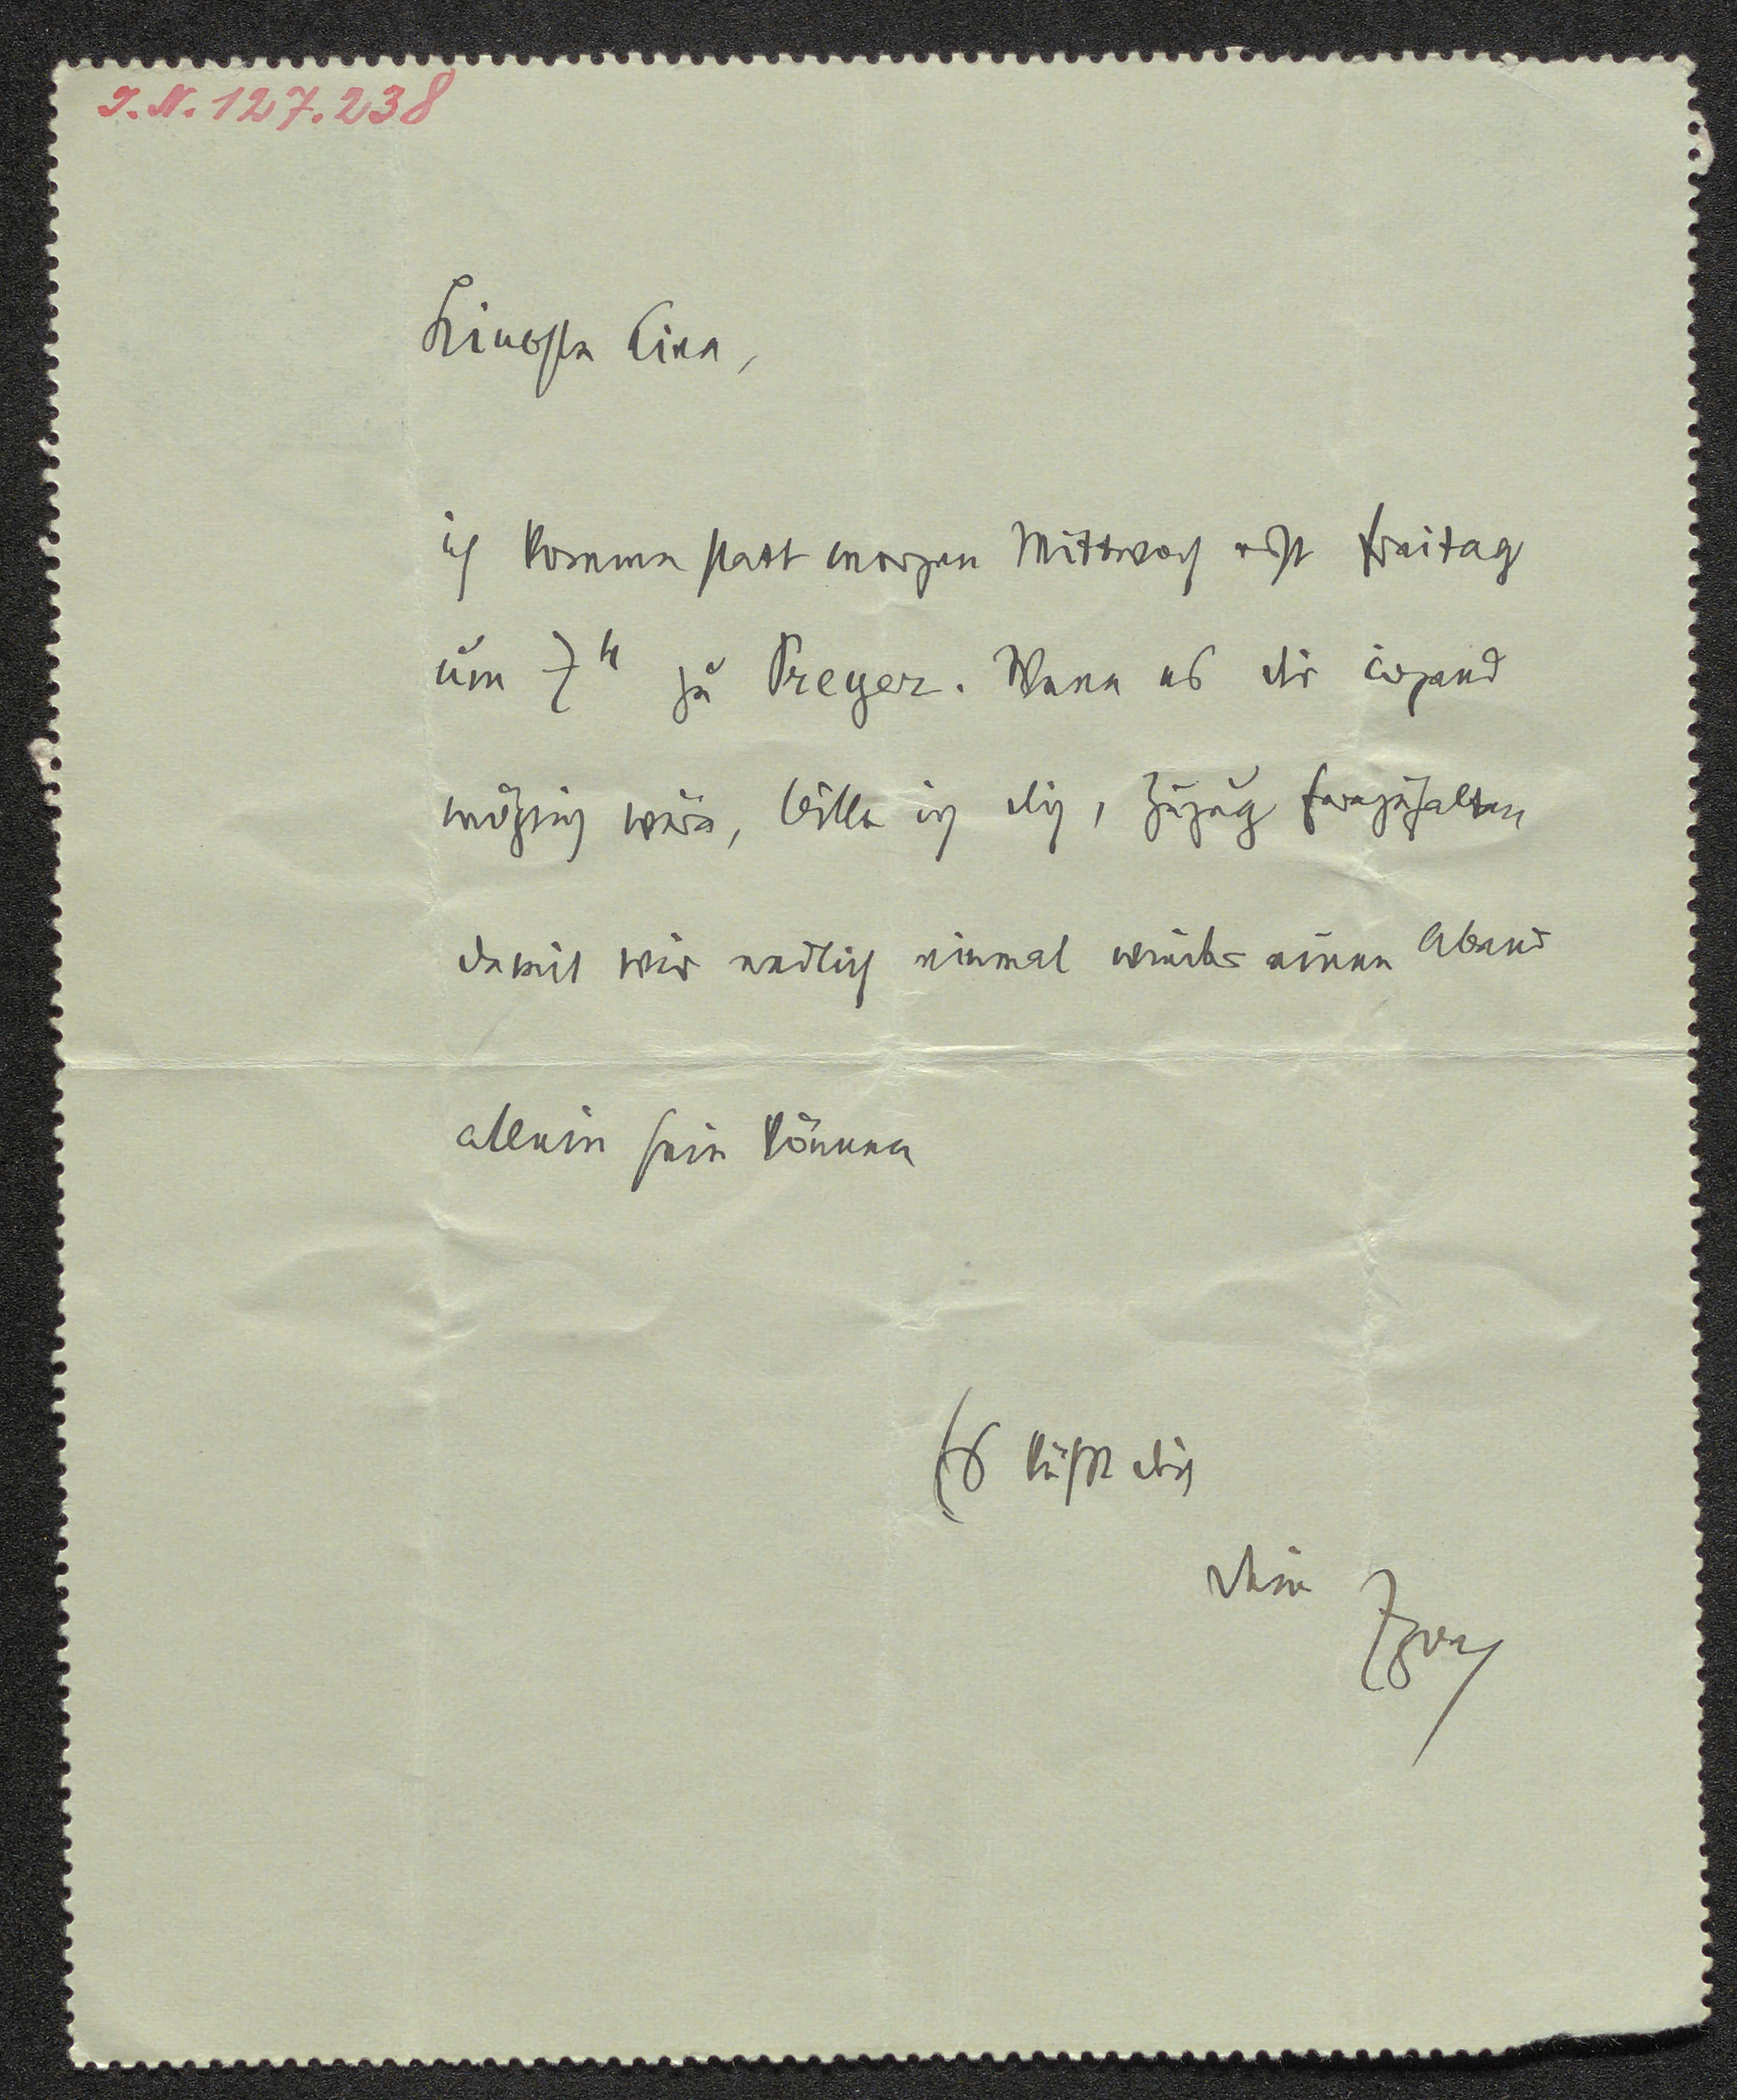 I.N. 127.238
Liebste Lina,
ich komme statt morgen Mittwoch erst Freitag
um 7h zu Preyer. Wenn es dir irgend
möglich wäre, bitte ich dich, Zuzug fernzuhalten
damit wir endlich einmal wieder einen Abend
allein sein können
Es küsst dich
dein Egon